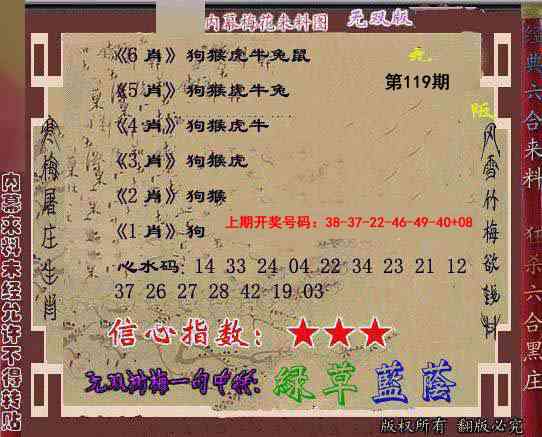 内幕梅花来料图 无双版
《6 肖》狗猴虎牛兔鼠
《5 肖》狗猴虎牛兔
第119期
《4 肖》狗猴虎牛
《3 肖》狗猴虎
《2 肖》狗猴
上期开奖号码：38-37-22-46-49-40+08
《1 肖》狗
心水码：14 33 24 04 22 34 23 21 12
37 26 27 28 42 19 03
信心指数：★★★
一句中特：绿草蓝荫
版权所有 翻版必究
内幕来料未经允许不得转贴
寒梅屠庄生肖
风雪竹梅欲
经典六合来料 狂杀六合黑庄